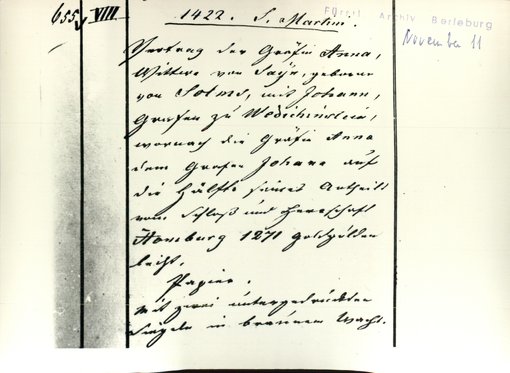 655 VIII. 1422. S. Martini.
Fürstl. Archiv Berleburg
November 11
Vertrag der Gräfin Anna,
Wittwe von Sayn, geborene
von Solms, mit Johann,
Grafen zu
wornach die Gräfin Anna
dem Grafen Johann auf
die Hälfte seines Antheils
vom Schloß und Herrschaft
Homburg 1271 Goldgülden
leiht.
Papier.
Mit zwei untergedrückten
Siegeln in braunem Wachs.